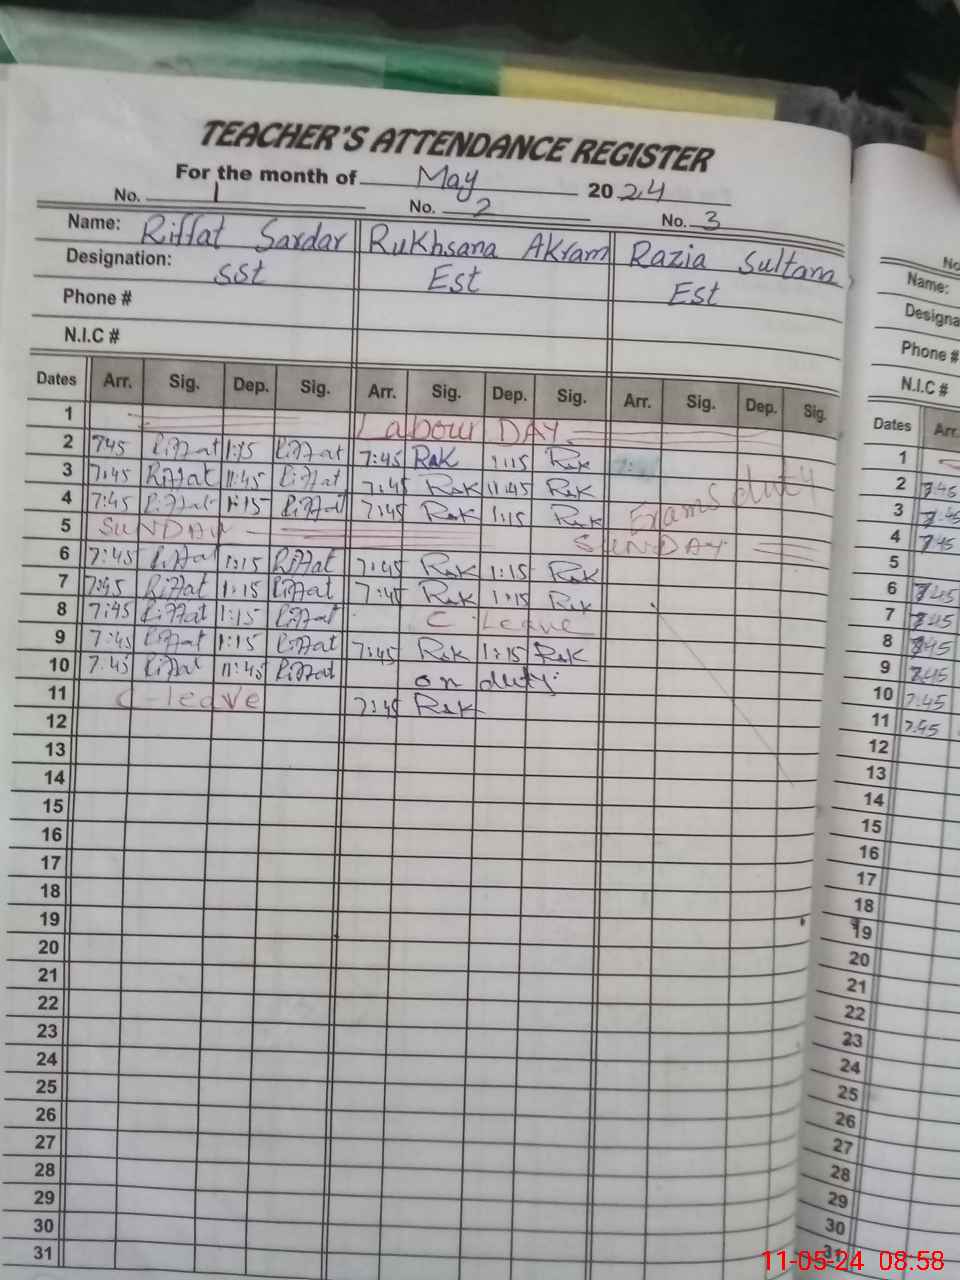 TEACHER'S ATTENDANCE REGISTER
For the month of May 2024
No. 1 No. 2 No. 3
Name: Riffat Sardar Rukhsana Akram Razia Sultana
Designation: SST Est Est
Phone #
N.I.C #
Dates Arr. Sig. Dep. Sig. Arr. Sig. Dep. Sig. Arr. Sig. Dep. Sig.
1 Labour DAY
2 7:45 Riffat 1:15 Riffat 7:45 RAK 1:15 RAK
3 7:45 Riffat 11:45 Riffat 7:45 RAK 11:45 RAK Exams duty
4 7:45 Riffat 1:15 Riffat 7:45 RAK 1:15 RAK
5 SUNDAY SUNDAY
6 7:45 Riffat 1:15 Riffat 7:45 RAK 1:15 RAK
7 7:45 Riffat 1:15 Riffat 7:45 RAK 1:15 RAK
8 7:45 Riffat 1:15 Riffat C. Leave
9 7:45 Riffat 1:15 Riffat 7:45 RAK 1:15 RAK
10 7:45 Riffat 11:45 Riffat on duty.
11 C-leave 7:45 RAK
12
13
14
15
16
17
18
19
20
21
22
23
24
25
26
27
28
29
30
31
No
Name:
Designa
Phone #
N.I.C #
Dates Arr.
1
2 7:45
3 7:45
4 7:45
5
6 7:45
7 7:45
8 7:45
9 7:45
10 7:45
11 7:45
12
13
14
15
16
17
18
19
20
21
22
23
24
25
26
27
28
29
30
31
11-05-24 08.58